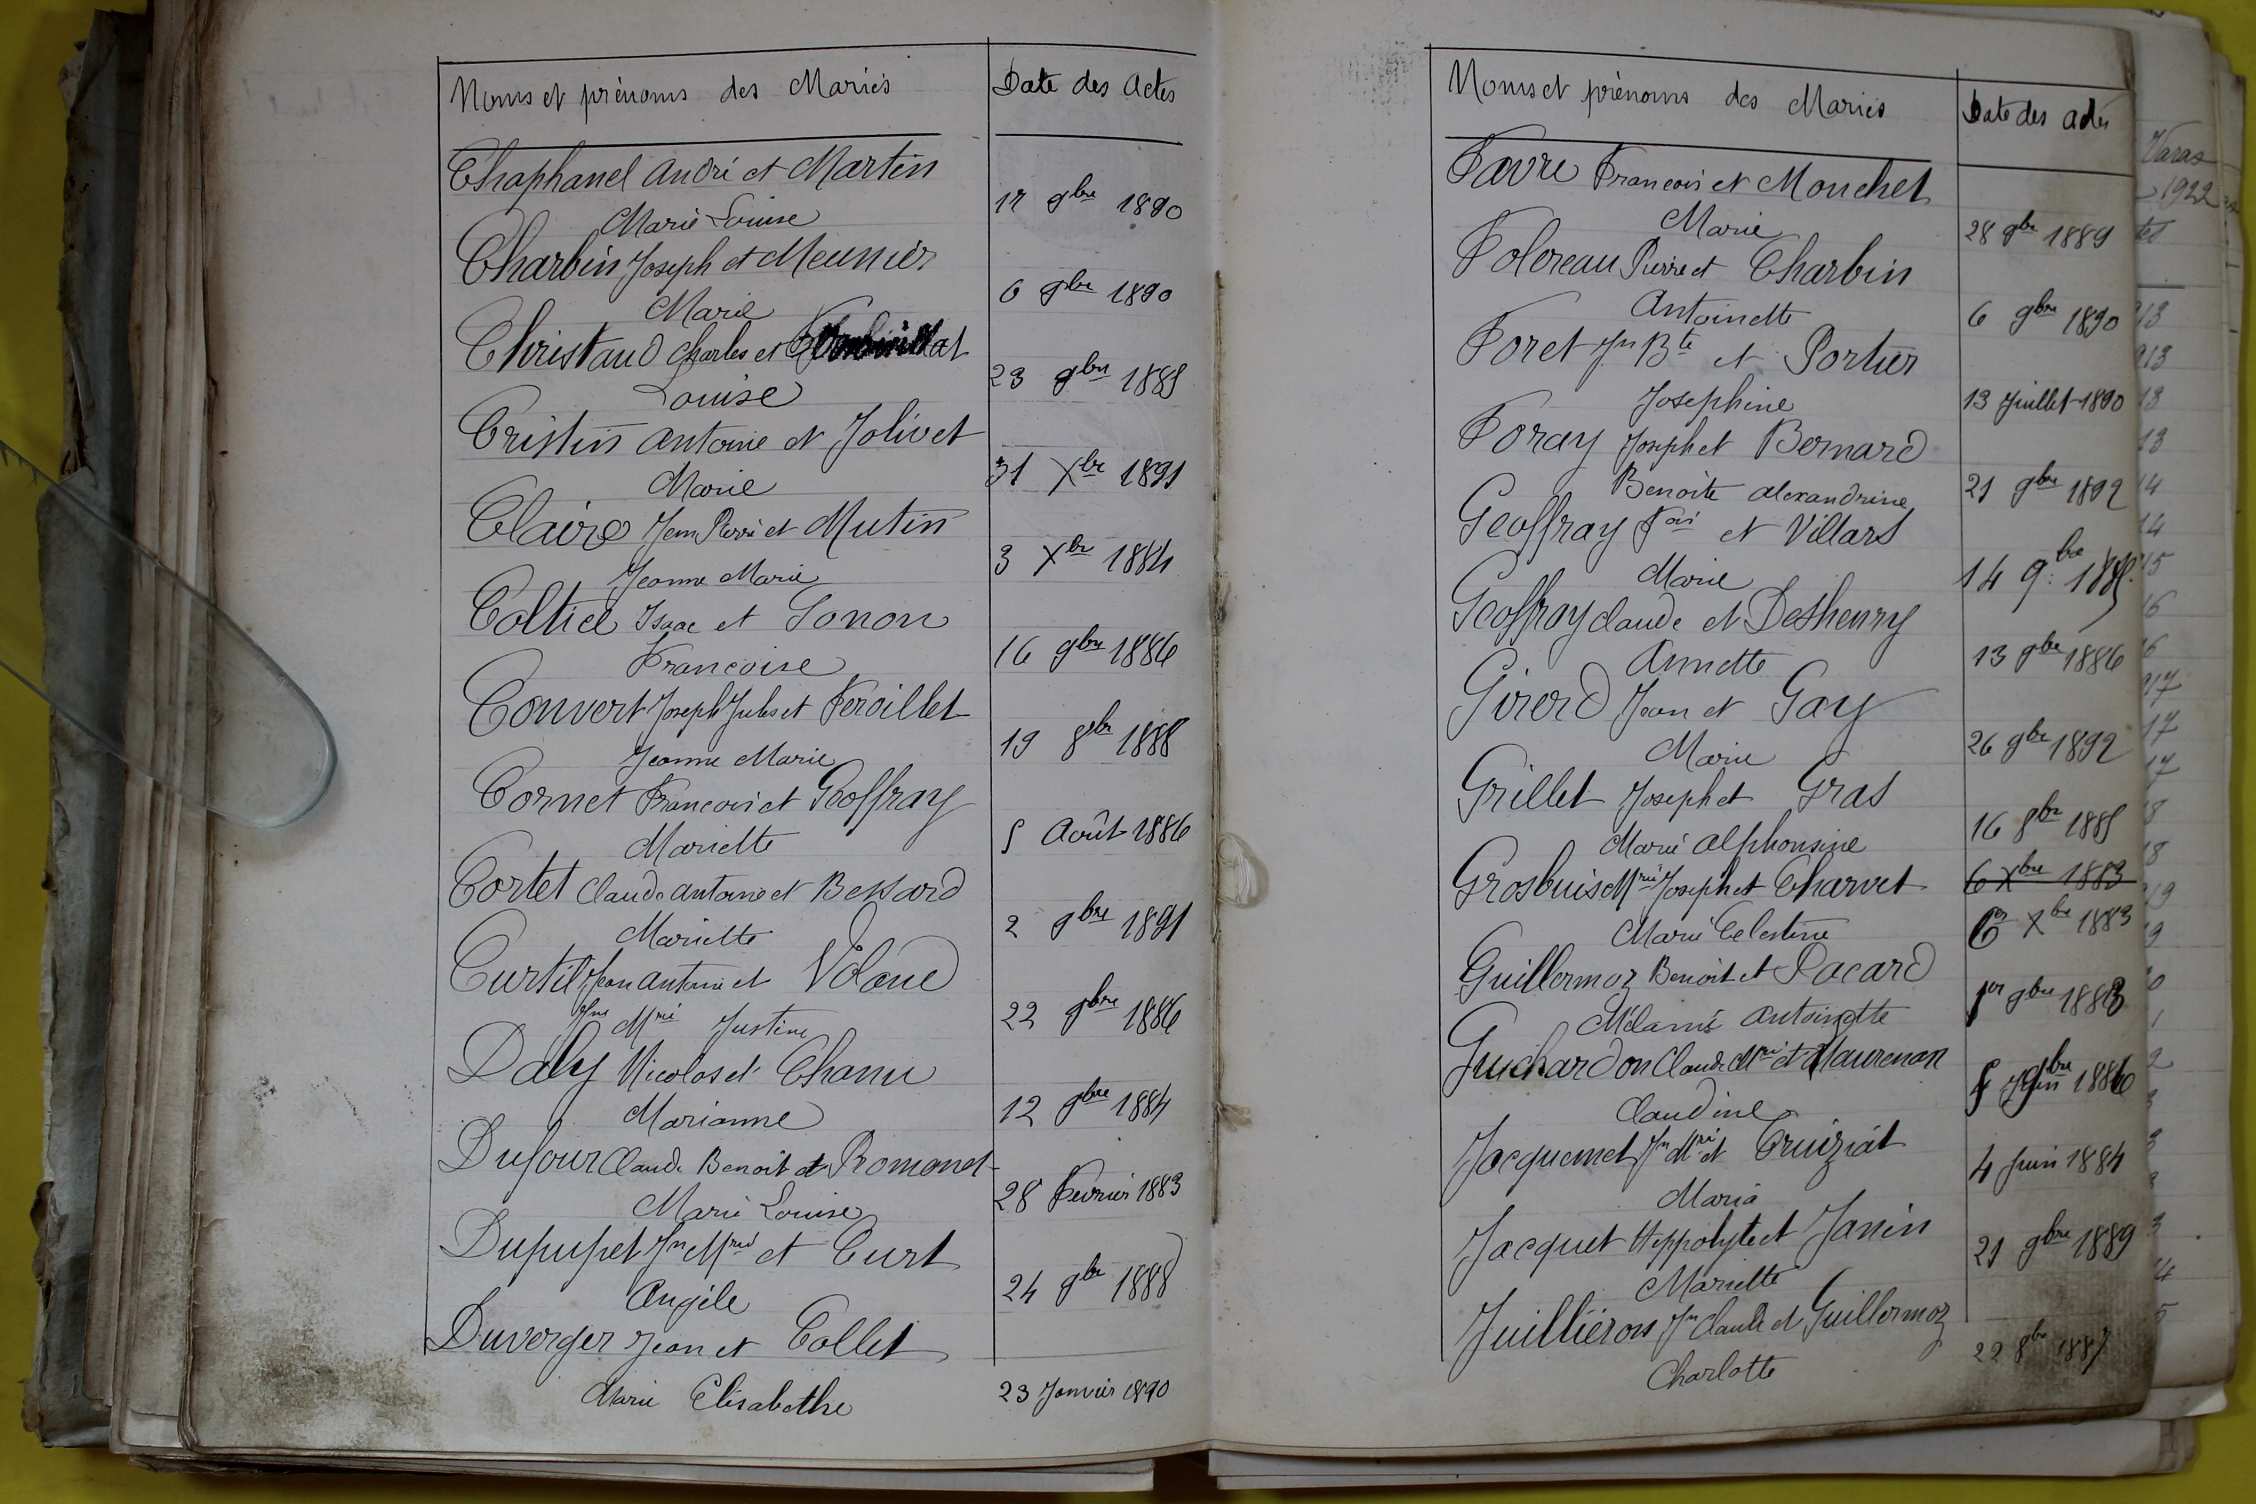 Noms et prénoms des Mariés Date des Actes
Chaphanel André et Martin
Marie Louise 17 9bre 1890
Charbin Joseph et Meunier
Marie 6 9bre 1890
Christaud Charles et
Louise 23 9bre 1885
Cristin Antoine et Jolivet
Marie 31 Xbre 1891
Claire Jean Pierre et Mutin
Jeanne Marie 3 Xbre 1884
Coltice Isaac et Sonon
Francoise 16 9bre 1886
Convert Joseph Jules et Feroillet
Jeanne Marie 19 8bre 1888
Cornet Francois et Geoffray
Mariette 5 Août 1886
Cortet Claude Antoine et Bessard
Mariette 2 9bre 1891
Curtil Jean Antoine et Volane
Jne Mrie Justine 22 9bre 1886
Daly Nicolas et Chanu
Marianne 12 9bre 1884
Dufour Claude Benoit et Romanet
Marie Louise 28 Février 1883
Dupupet Jn Mrie et Curt
Angèle 24 9bre 1888
Duverger Jean et Collet
Marie Elisabethe 23 Janvier 1890
Noms et prénoms des Mariés Date des actes
Favre Francois et Mouchet
Marie 28 9bre 1889
Folereau Pierre et Charbin
Antoinette 6 9bre 1890
Foret Jn Bte et Portier
Josephine 13 Juillet 1890
Foray Joseph et Bernard
Benoite Alexandrine 21 9bre 1892
Geoffray Fois et Villars
Marie 14 9bre 1885
Geoffray Claude et Deshenry
Annette 13 9bre 1886
Girerd Jean et Gay
Marie 26 9bre 1892
Grillet Joseph et Gras
Marie Alphonsine 16 8bre 1885
Grosbuis Mrie Joseph et Charvet 6 Xbre 1883
Marie Celestine 6 Xbre 1883
Guillermoz Benoit et Pacard
Mélanie Antoinette 1er 9bre 1883
Guichardon Claude Mrie et Maurenan
Claudine 1886
Jacquemet Jn Mrie et Cruiziat
Maria 4 Juin 1884
Jacquet Hyppolyte et Janin
Mariette 21 9bre 1889
Juilliérons Jn Claude et Guillermoz
Charlotte 22 8bre 1887
Varas
1922